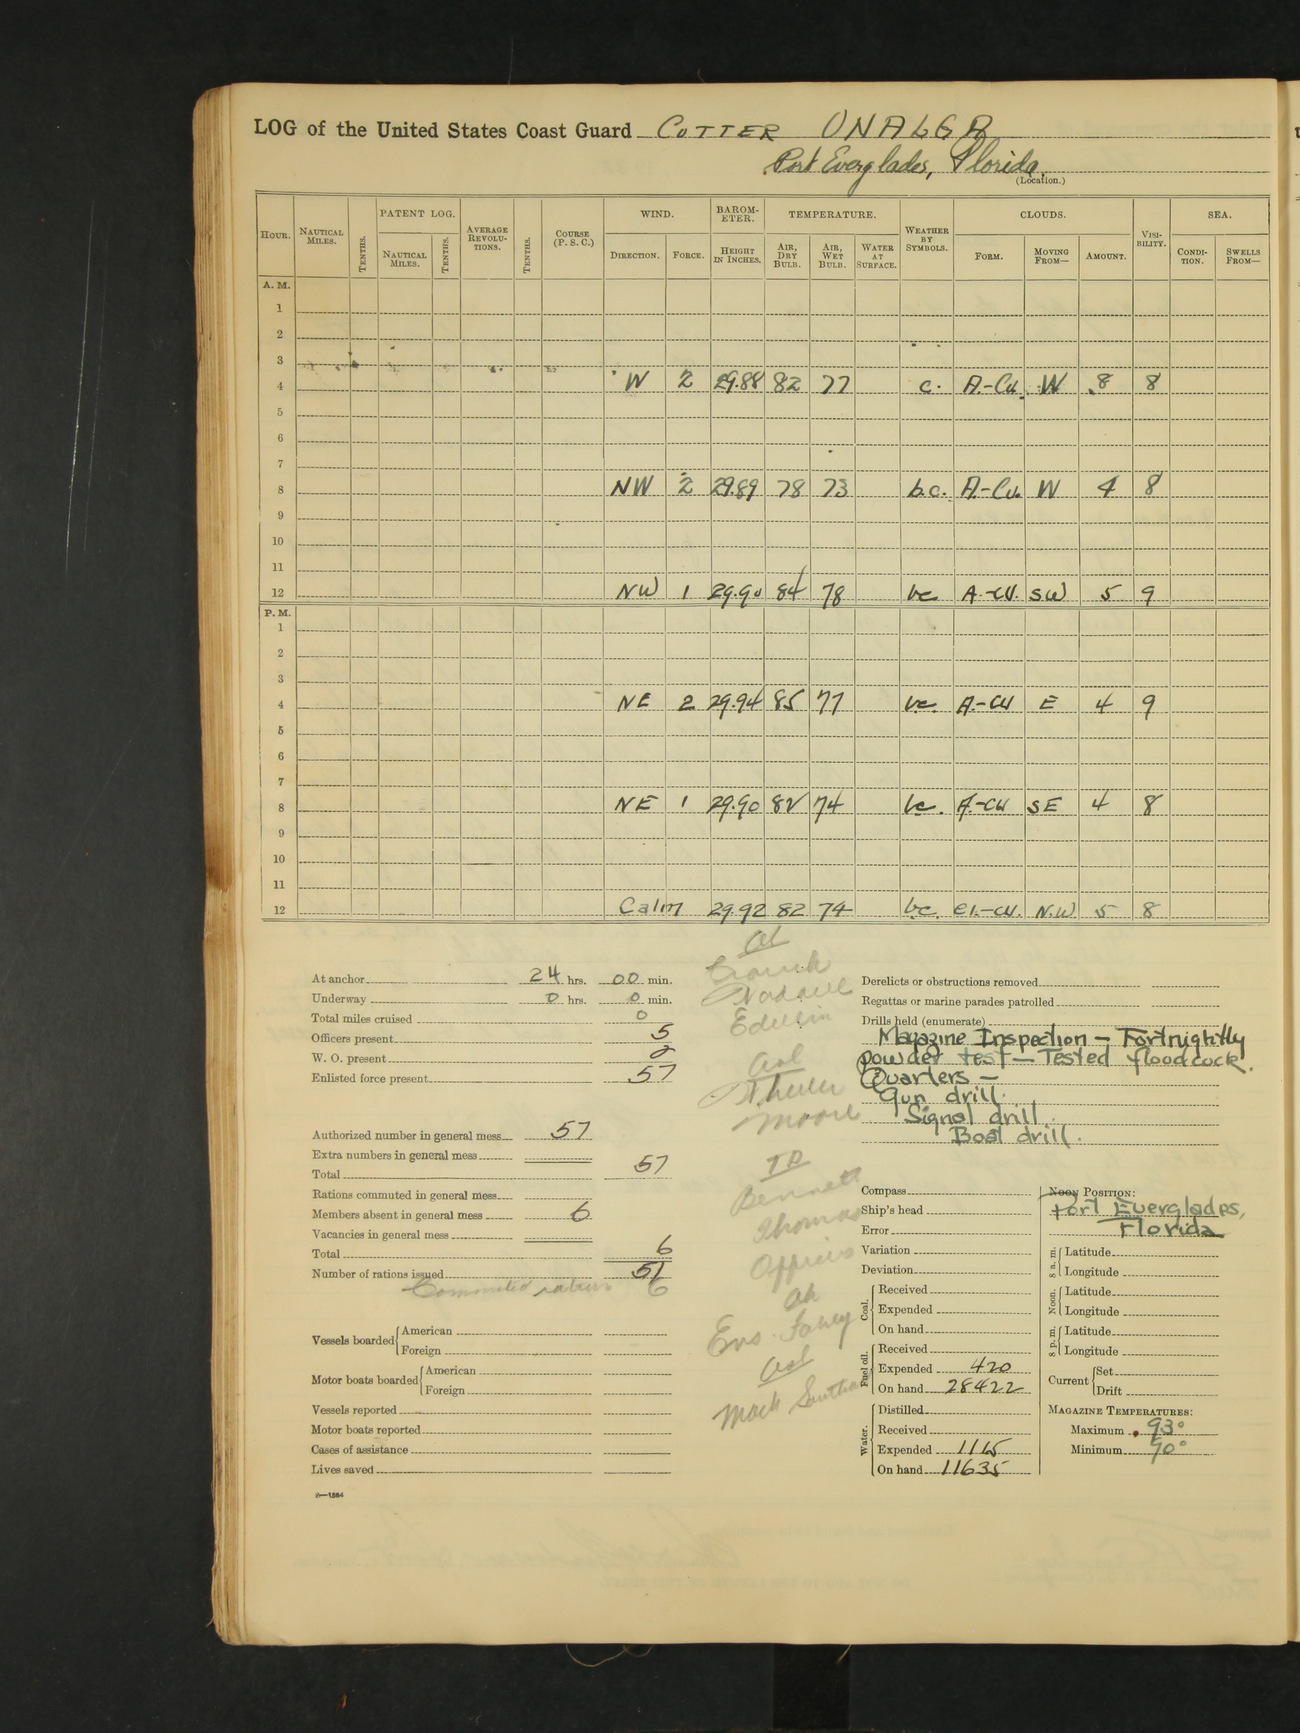 LOG of the United States Coast Guard CUTTER UNALGA
Port Everglades, Florida
(Location.)
HOUR. NAUTICAL MILES. TENTHS. PATENT LOG. NAUTICAL MILES. TENTHS. AVERAGE REVOLUTIONS. TENTHS. COURSE (P. S. C.) WIND. DIRECTION. FORCE. BAROMETER. HEIGHT IN INCHES. TEMPERATURE. AIR, DRY BULB. AIR, WET BULB. WATER AT SURFACE. WEATHER BY SYMBOLS. CLOUDS. FORM. MOVING FROM— AMOUNT. VISIBILITY. SEA. CONDITION. SWELLS FROM—
A. M.
1
2
3
4 W 2 29.88 82 77 c. A.-Cu. W 8 8
5
6
7
8 NW 2 29.89 78 73 b.c. A.-Cu. W 4 8
9
10
11
12 NW 1 29.90 84 78 bc A.-CU. SW 5 9
P. M.
1
2
3
4 NE 2 29.94 85 77 bc. A.-CU E 4 9
5
6
7
8 NE 1 29.90 82 74 bc. A.-CU SE 4 8
9
10
11
12 Calm 29.92 82 74 bc. CI.-CU. N.W 5 8
At anchor 24 hrs. 00 min.
Underway 0 hrs. 0 min.
Total miles cruised 0
Officers present 5
W. O. present 2
Enlisted force present 57
Authorized number in general mess 57
Extra numbers in general mess
Total 57
Rations commuted in general mess
Members absent in general mess 6
Vacancies in general mess
Total 6
Number of rations issued 51
Commuted rations 6
Vessels boarded American
Foreign
Motor boats boarded American
Foreign
Vessels reported
Motor boats reported
Cases of assistance
Lives saved
A—1884
aol
Moore
TD
Bennett
Thomas
Officers
Ens. Fahey
aol
Mack
Derelicts or obstructions removed
Regattas or marine parades patrolled
Drills held (enumerate)
Magazine Inspection — Fortnightly
powder test — Tested floodcock.
Quarters —
Gun drill.
Signal drill.
Boat drill.
Compass
Ship's head
Error
Variation
Deviation
Coal. Received
Expended
On hand
Fuel oil. Received
Expended 420
On hand 28422
Water. Distilled
Received
Expended 1115
On hand 11635
NOON POSITION:
Port Everglades,
Florida
8 a. m. Latitude
Longitude
Noon. Latitude
Longitude
8 p. m. Latitude
Longitude
Current Set
Drift
MAGAZINE TEMPERATURES:
Maximum 93°
Minimum 90°